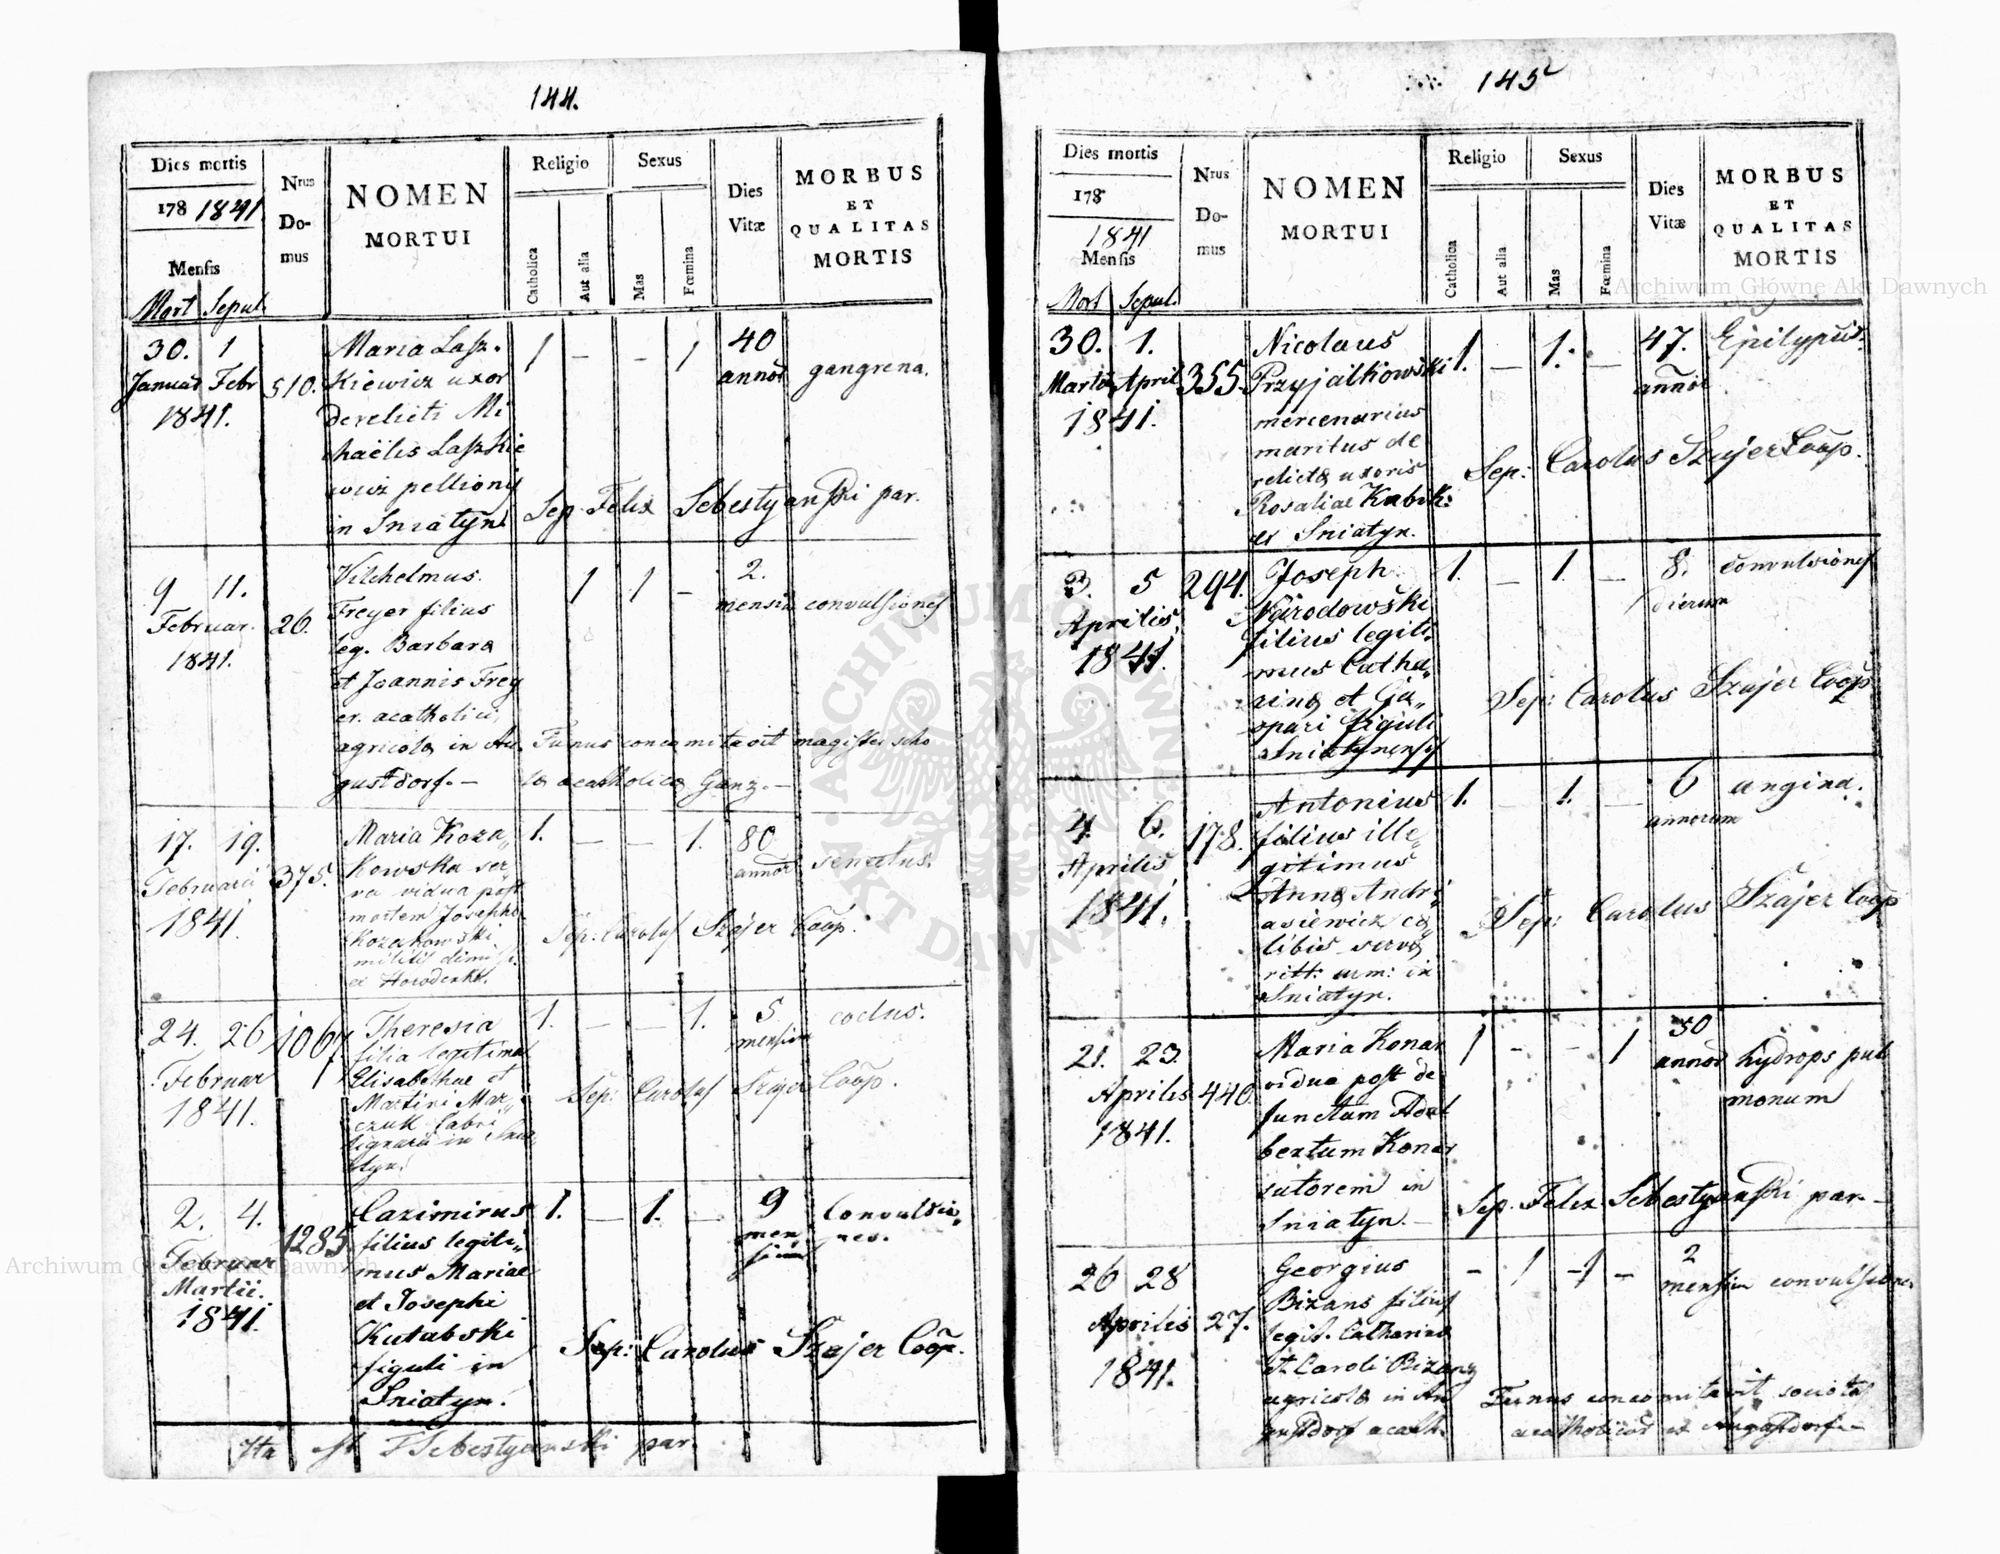 144.
Dies mortis
178 1841.
Mensis
Mort Sepul.
Nrus
Do-
mus
NOMEN
MORTUI
Religio
Catholica
Aut alia
Sexus
Mas
Fœmina
Dies
Vitæ
MORBUS
ET
QUALITAS
MORTIS
30. 1
Januar Febr
1841.
510.
Maria Lasz-
kiewicz uxor
derelicti Mi
chaëlis Laszkie
wicz pellionis
in Sniatyn
1 – – 1
40
annor
gangrena.
Sep. Felix Sebestyanski par.
9 11.
Februar.
1841.
26.
Vilchelmus.
Freyer filius
leg. Barbara
et Joannis Frey
er. acatholici,
agricola in Au
gustdorf. –
1 1 –
2.
mensiu
convulsiones
Funus concomitavit magister scho
la acatholica Ganz. –
17. 19.
Februarii
1841.
375.
Maria Koza„
kowska ser„
va vidua post
mortem Josephi
Kozakowski
militis dimissi
ex Horodenka.
1. – – 1.
80
annor
senectus.
Sep: Carolus Szajer Coop.
24. 26
Februar
1841.
1067
Theresia
filia legitima
Elisabethae et
Martini Mar„
czuk fabri
lignarii in Snia„
tyn.
1. – – 1.
5
mensiu
Sep: Carolus Szajer Coop.
2. 4.
Februar
Martii.
1841.
1285
Cazimirus
filius legiti„
mus Mariae
et Josephi
Kutabski
figuli in
Sniatyn.
1. – 1. –
9
men
sium
Convulsio„
nes.
Sep: Carolus Szajer Coop.
Ita est F Sebestyanski par.
145
Dies mortis
178
1841
Mensis
Mort Sepul.
Nrus
Do-
mus
NOMEN
MORTUI
Religio
Catholica
Aut alia
Sexus
Mas
Fœmina
Dies
Vitæ
MORBUS
ET
QUALITAS
MORTIS
30. 1.
Martii April
1841.
355.
Nicolaus
Przyjalkowski
mercenarius
maritus de
relicta uxoris
Rosaliae Kubik:
ex Sniatyn.
1. – 1. –
47.
annor
Sep: Carolus Szajer Coop.
3. 5
Aprilis
1841.
294.
Joseph
Narodowski
filius legiti„
mus Catha„
rina et Ga„
spari figuli
Sniatynensis
1. – 1. –
8.
dierum
convulsiones
Sep: Carolus Szajer Coop
4. 6.
Aprilis
1841.
178.
Antonius
filius ille„
gitimus
Anna Andri„
asiewicz cæ„
libis serva
in
Sniatyn.
1. – 1. –
6
annorum
angina.
Sep: Carolus Szajer Coop
21. 23
Aprilis
1841.
440.
Maria Konar
vidua post de
functum Adal
bertum Konar
sutorem in
Sniatyn. –
1 – – 1
50
annor
hydrops pul
monum
Sep. Felix Sebestyanski par. –
26 28
Aprilis
1841.
27.
Georgius
Bizans filius
legit. Catharina
et Caroli Bizans
agricola in Au
gustdorf acath.
– 1 1 –
2
mensiu
convulsiones
Funus concomitavit societas
acatholicor ex Augustdorf. –
Archiwum Główne Akt Dawnych
Archiwum Główne Akt Dawnych
ARCHIWUM GŁÓWNE AKT DAWNYCH